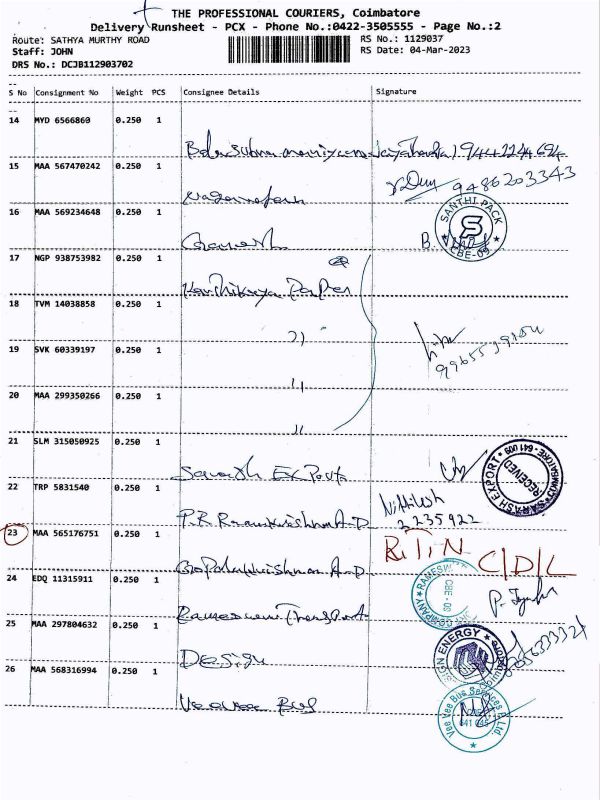 THE PROFESSIONAL COURIERS, Coimbatore
Delivery Runsheet - PCX - Phone No.:0422-3505555 - Page No.:2
Route: SATHYA MURTHY ROAD
RS No.: 1129037
Staff: JOHN
RS Date: 04-Mar-2023
DRS No.: DCJB112903702
S No Consignment No Weight PCS Consignee Details Signature
14 MYD 6566860 0.250 1
15 MAA 567470242 0.250 1
9486203343
16 MAA 569234648 0.250 1
Ganesh
SANTHI PACK
S
CBE-09
17 NGP 938753982 0.250 1
Karthikeya Paper
18 TVM 14038858 0.250 1
19 SVK 60339197 0.250 1
20 MAA 299350266 0.250 1
21 SLM 315050925 0.250 1
RECEIVED
22 TRP 5831540 0.250 1
Nithilesh
2235922
P.R Ramakrishnan A-D
23 MAA 565176751 0.250 1
RTN C/D/L
Gopalakrishnan A-D
24 EDQ 11315911 0.250 1
Rameswari Transport
25 MAA 297804632 0.250 1
SIGN ENERGY
Design
26 MAA 568316994 0.250 1
Vee Vee Bus
Vee Vee Bus Services P Ltd.